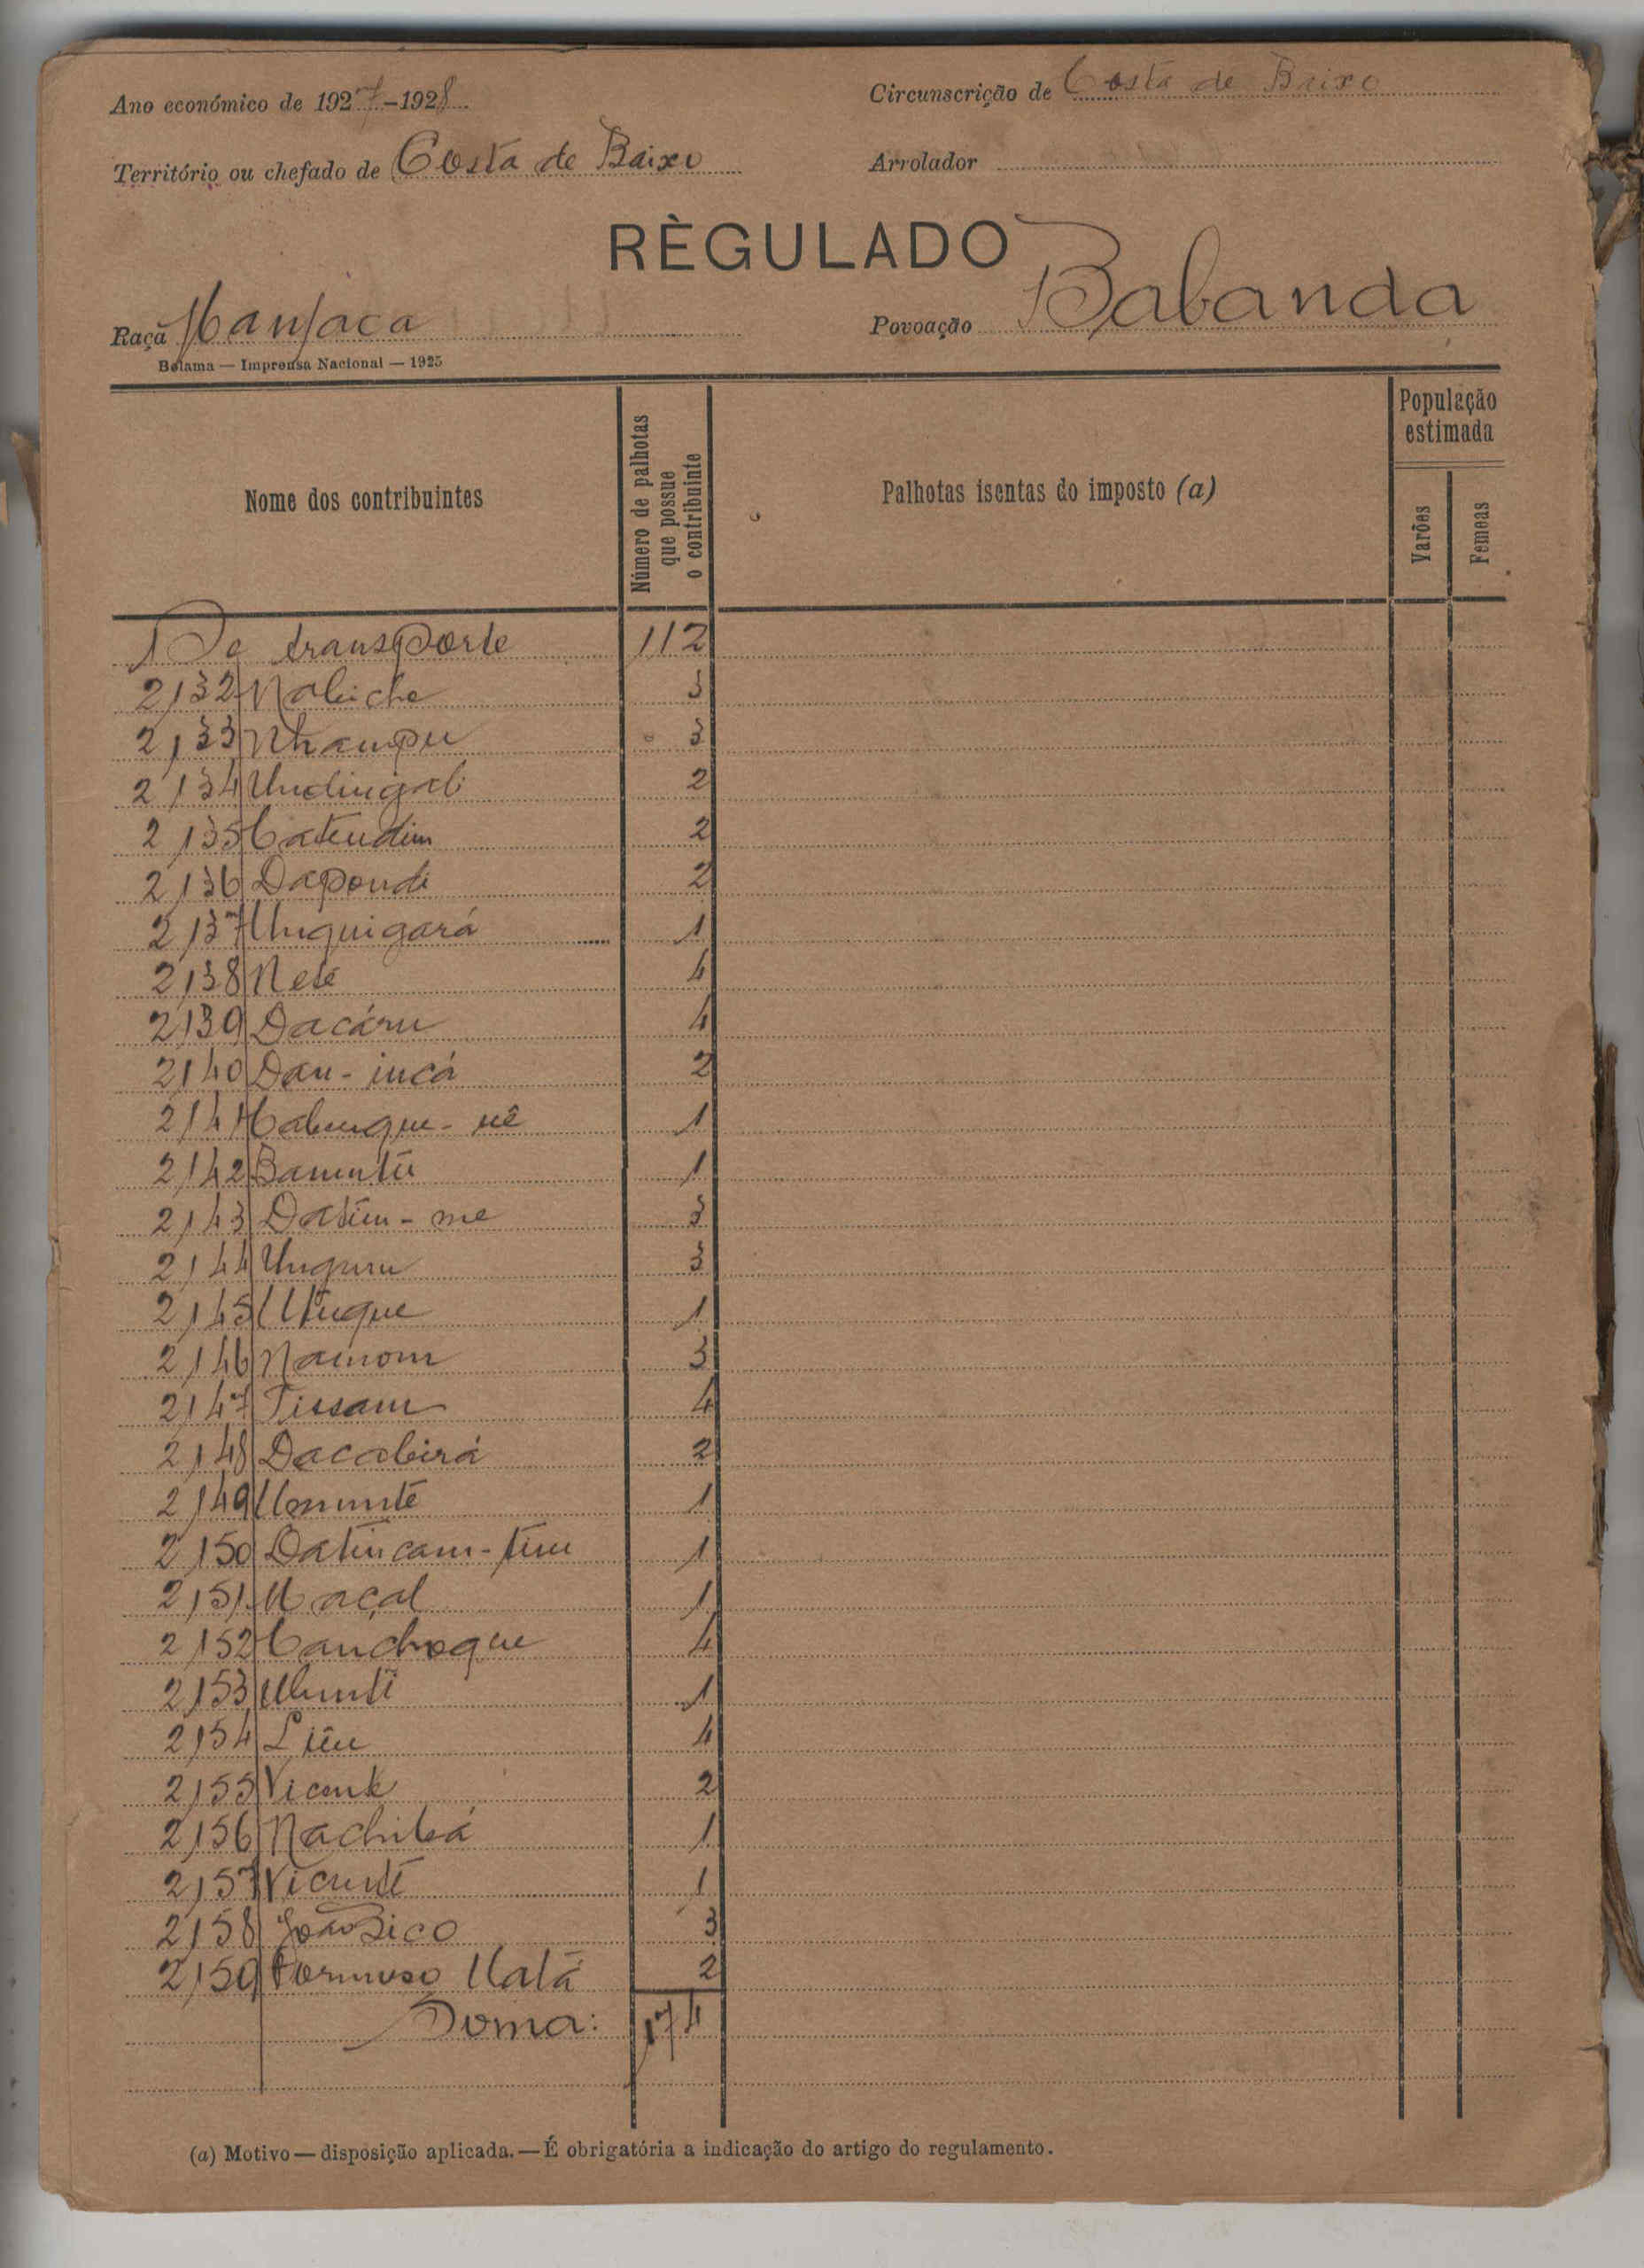 Ano económico de 1927-1928
Circunscrição de Costa de Baixo
Território ou chefado de Costa de Baixo
Arrolador
RÈGULADO
Raça Manjaca
Povoação Babanda
Bolama — Imprensa Nacional — 1925
Nome dos contribuintes
Número de palhotas que possue o contribuinte
Palhotas isentas do imposto (a)
População estimada
Varões
Femeas
De transporte 112
2132 Nabiche 3
2133 Nhampu 3
2134 Undingali 2
2135 Catendim 2
2136 Dapondi 2
2137 Unguigará 1
2138 Nelé 4
2139 Dacáru 4
2140 Dan-incá 2
2141 Cabungue-nê 1
2142 Banuntu 1
2143 Datim-me 3
2144 Unguru 3
2145 Utuque 1
2146 Nainom 3
2147 Tissam 4
2148 Dacabirá 2
2149 1
2150 Datincam-tim 1
2151 Maçal 1
2152 Canchoque 4
2153 1
2154 Liêu 4
2155 Vicente 2
2156 Nachibá 1
2157 Vicente 1
2158 João Bico 3
2159 Formoso Natá 2
Soma: 174
(a) Motivo — disposição aplicada. — É obrigatória a indicação do artigo do regulamento.